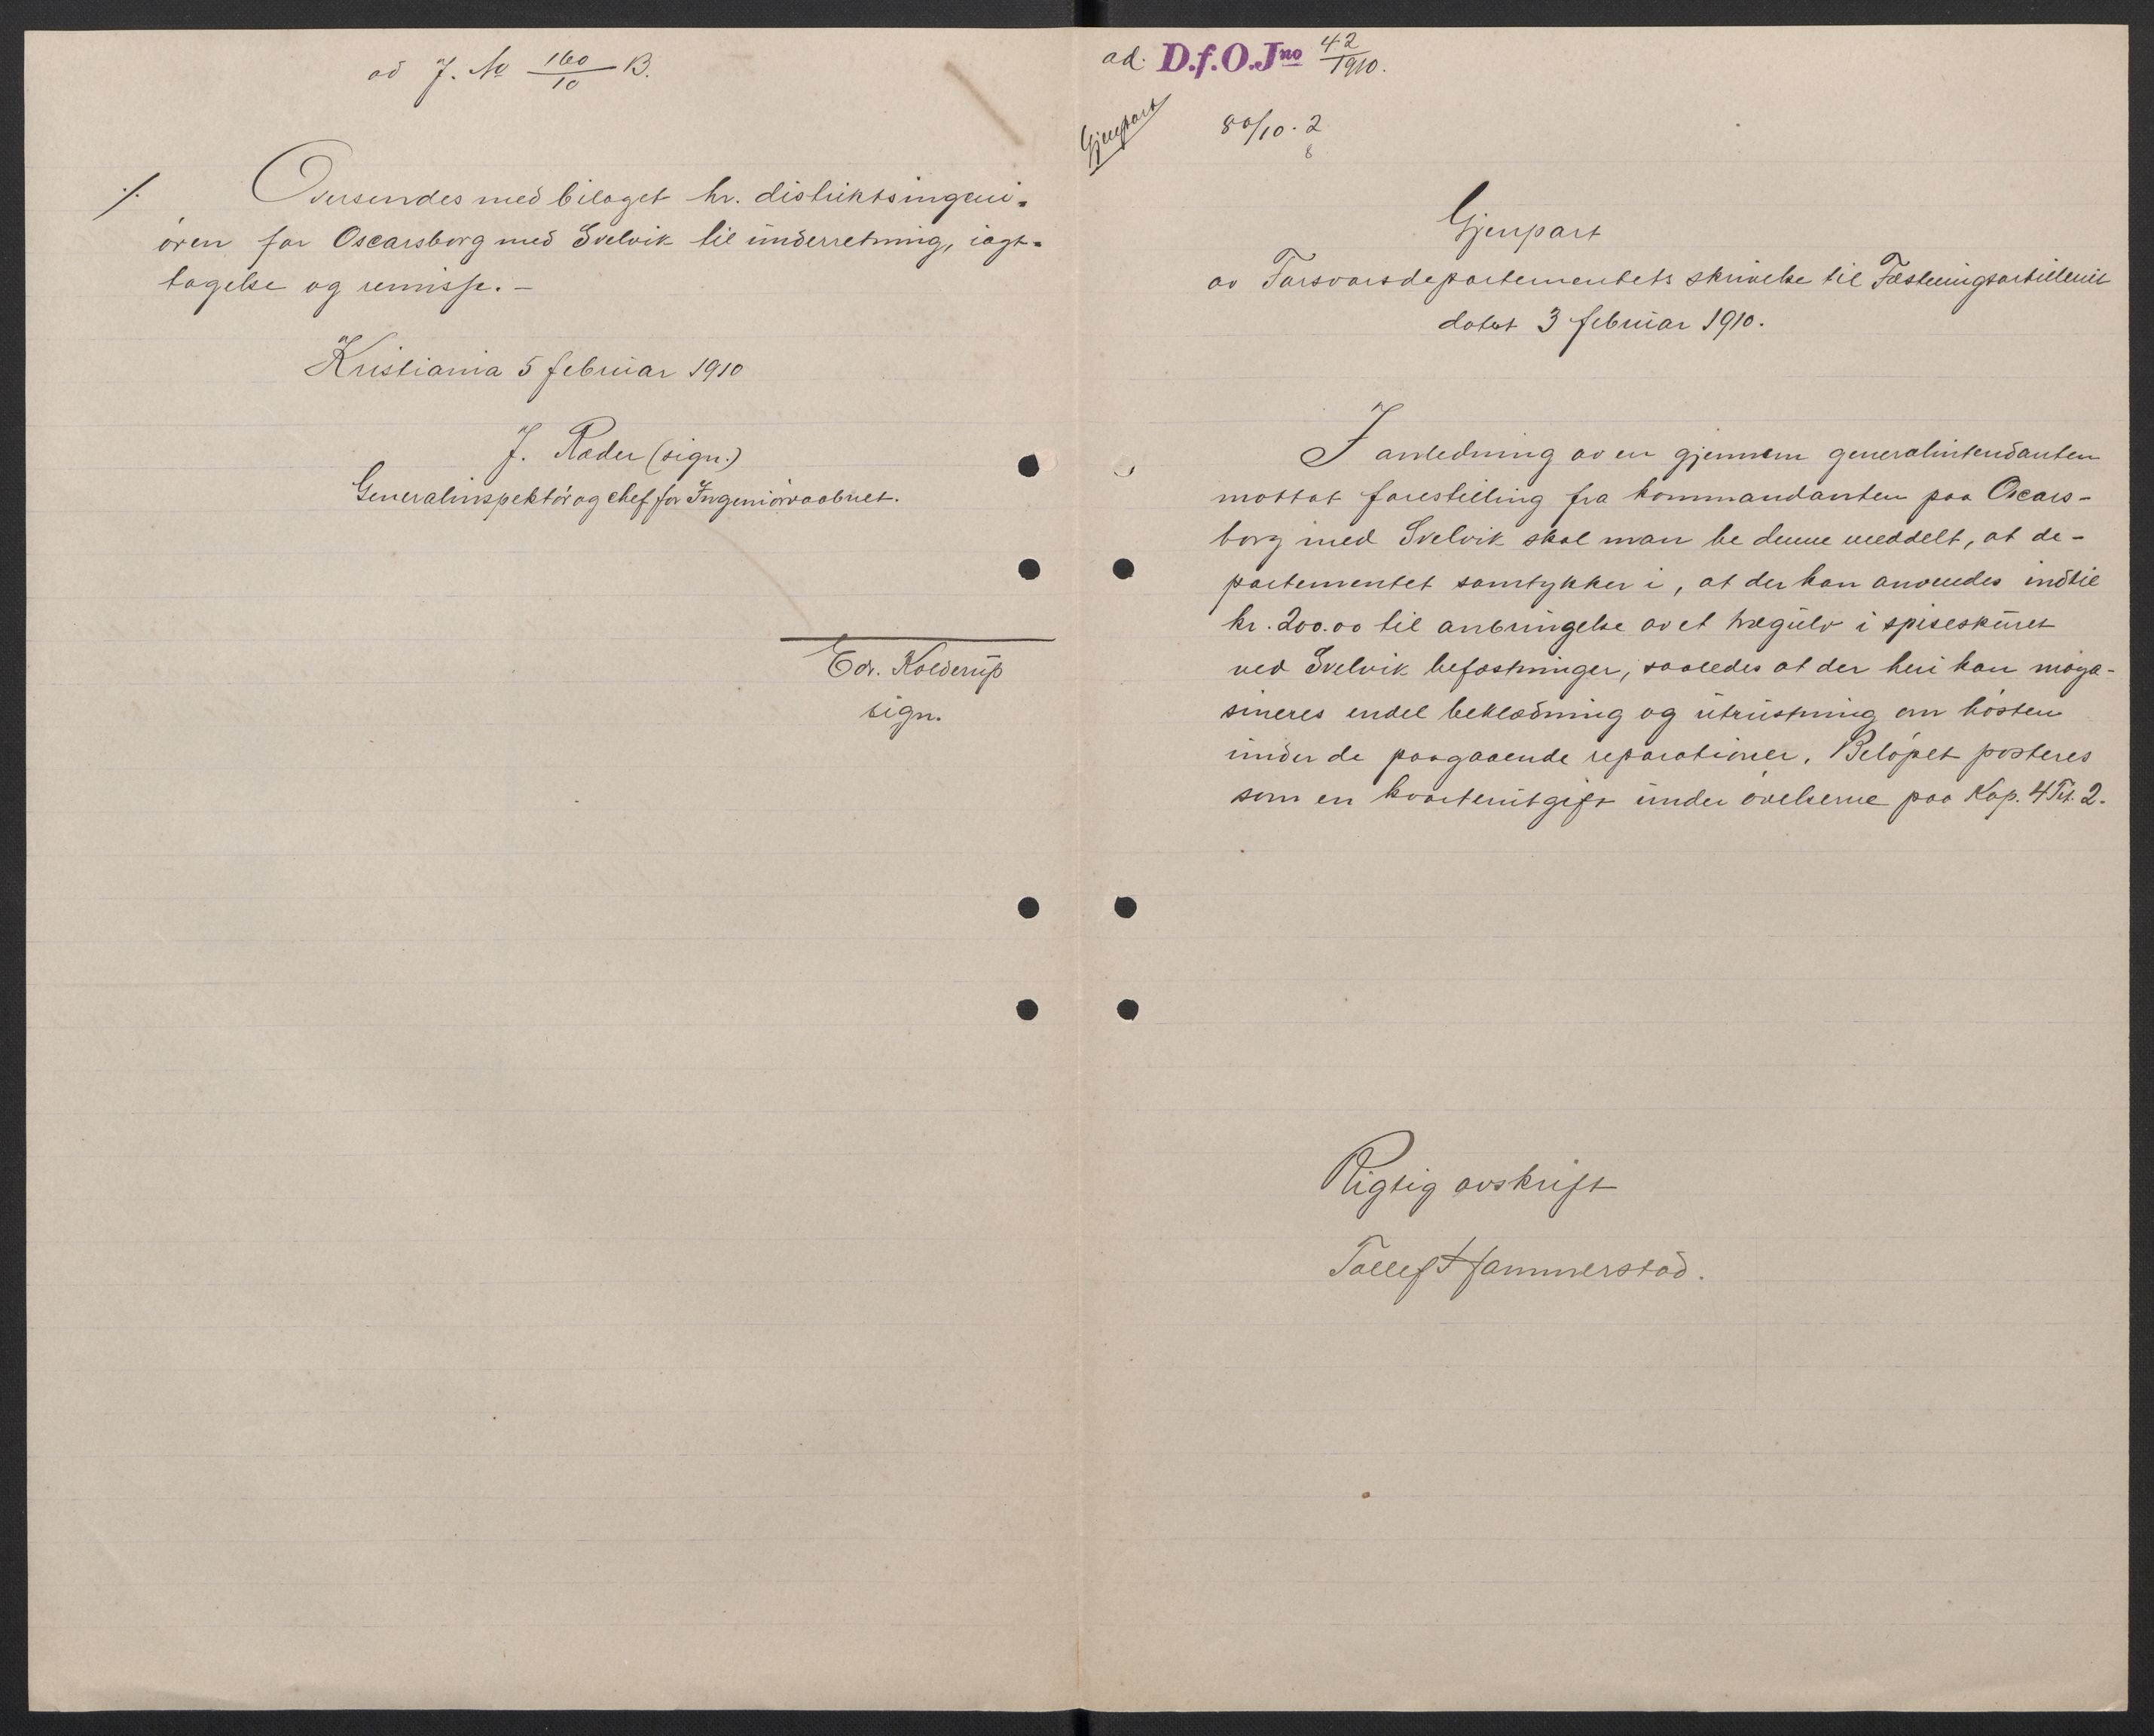 ad J. No 160/10 B.
·/. Oversendes med bilaget hr. distriktsingeni-
ören for Oscarsborg med Svelvik til underretning, iagt-
tagelse og remisse. –
Kristiania 5 februar 1910
J. Ræder (sign.)
Generalinspektör og chef for Ingeniörvaabnet.
Edv. Kolderup
sign.
ad. D.f.O.Jno 42/1910.
Gjenpart
80/10. 2
8
Gjenpart
av Forsvarsdepartementets skrivelse til Fæstningsartilleriet
datert 3 februar 1910.
I anledning av en gjennem generalintendanten
mottat forestilling fra kommandanten paa Oscars-
borg med Svelvik skal man be denne meddelt, at de-
partementet samtykker i, at der kan anvendes indtil
kr. 200.00 til anbringelse av et trægulv i spiseskuret
ved Svelvik befæstninger, saaledes at der heri kan maga-
sineres endel beklædning og utrustning om hösten
under de paagaaende reparationer. Belöpet posteres
som en kvarterutgift under övelserne paa Kap. 4 Tit. 2.
Rigtig avskrift
Tollef Hammerstad.